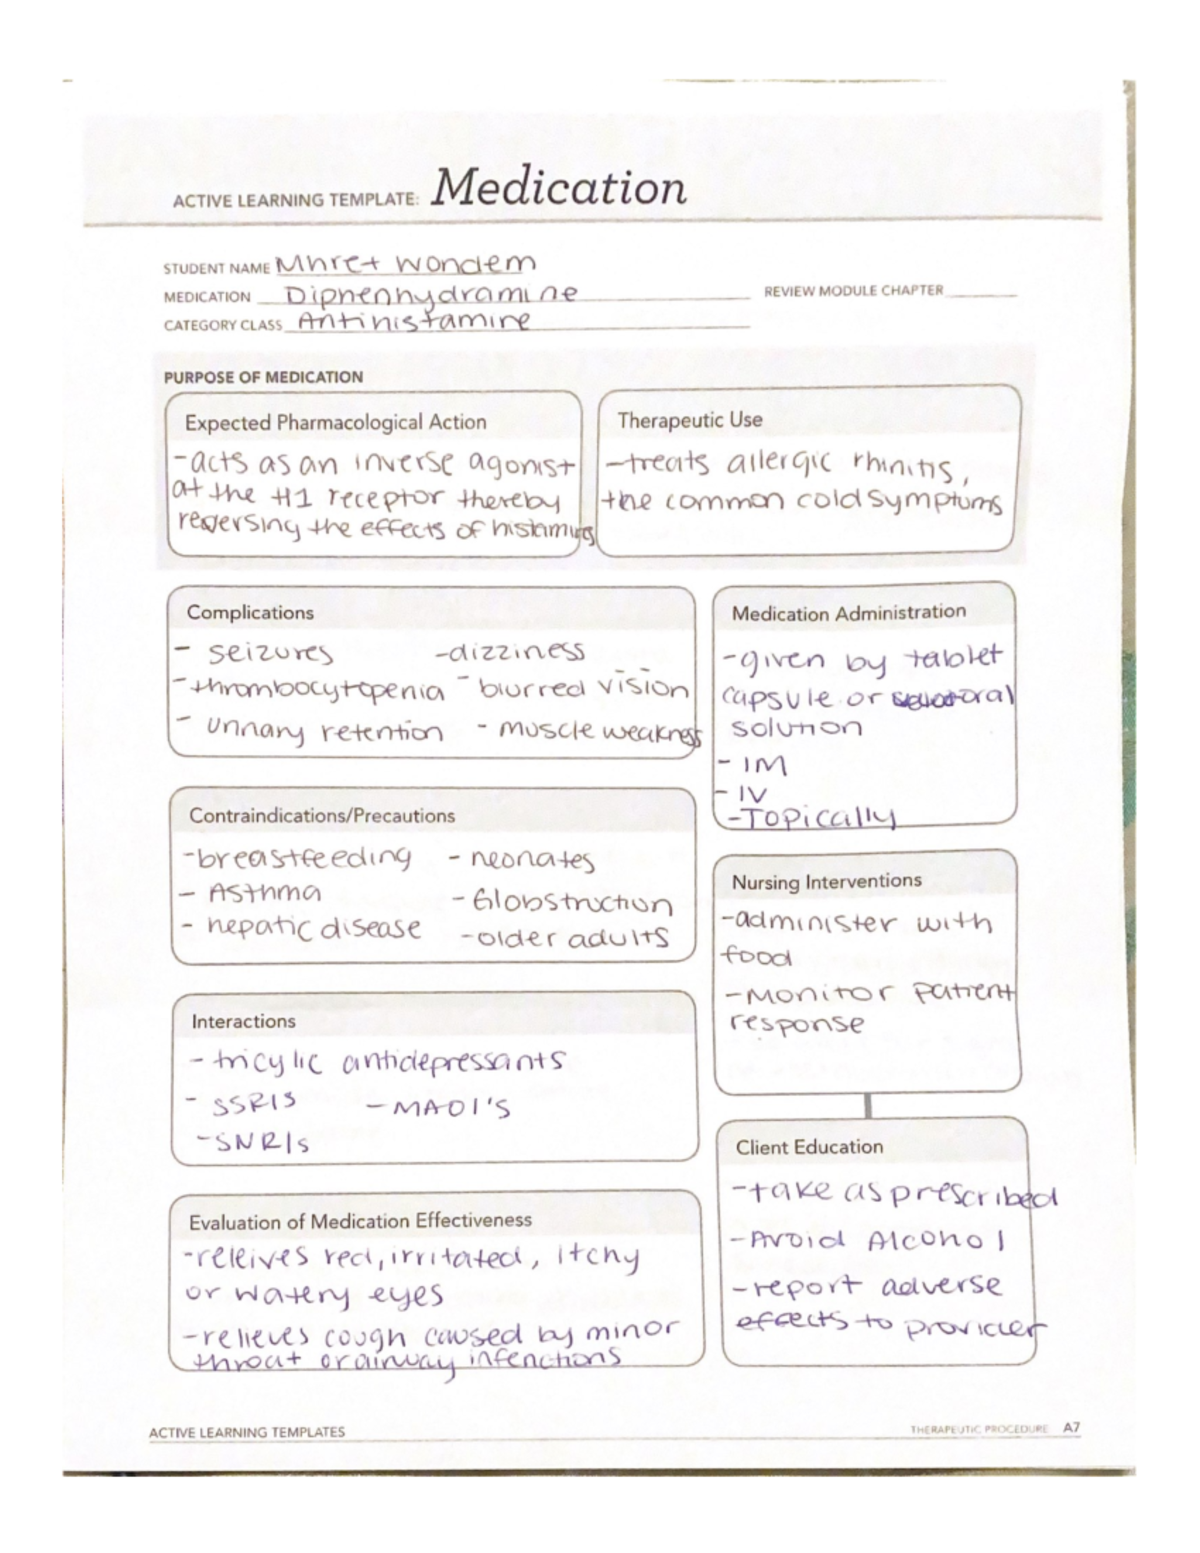 ACTIVE LEARNING TEMPLATE: Medication
STUDENT NAME Mhret Wondem
MEDICATION Diphenhydramine
REVIEW MODULE CHAPTER
CATEGORY CLASS Antihistamine
PURPOSE OF MEDICATION
Expected Pharmacological Action
-acts as an inverse agonist
at the H1 receptor thereby
reversing the effects of histamines
Therapeutic Use
-treats allergic rhinitis,
the common cold symptoms
Complications
- seizures -dizziness
-thrombocytopenia - blurred vision
- urinary retention - muscle weakness
Medication Administration
-given by tablet
capsule or oral
solution
- IM
- IV
-Topically
Contraindications/Precautions
-breastfeeding - neonates
- Asthma - GI obstruction
- hepatic disease -older adults
Nursing Interventions
-administer with
food
-Monitor patient
response
Interactions
- tricylic antidepressants
- SSRIS - MAOI'S
-SNRIs
Client Education
-take as prescribed
-Avoid Alcohol
-report adverse
effects to provider
Evaluation of Medication Effectiveness
-releives red, irritated, itchy
or watery eyes
-relieves cough caused by minor
throat or airway infenctions
ACTIVE LEARNING TEMPLATES
THERAPEUTIC PROCEDURE A7